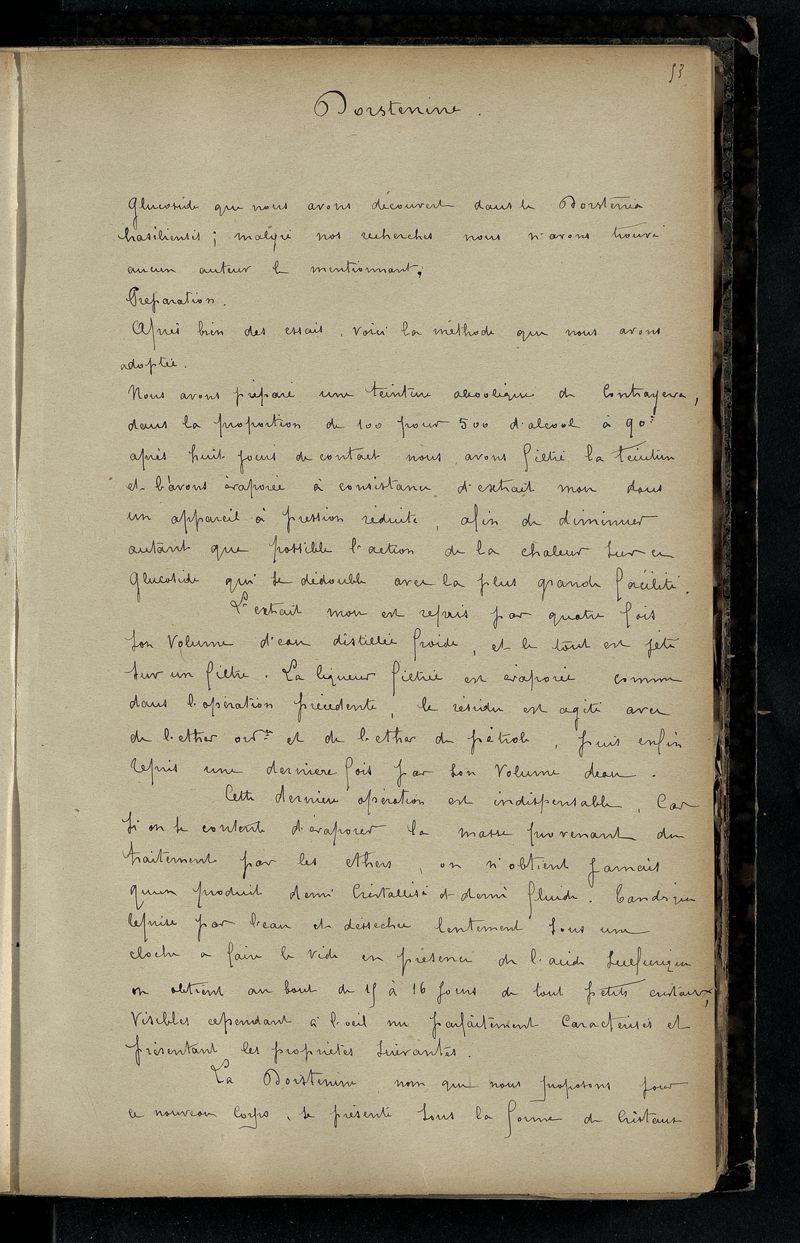 53
Dorstenine.
Glucoside que nous avons découvert dans le Dorstenia
brasiliensis ; malgré nos recherches nous n'avons trouvé
aucun auteur le mentionnant,
Préparation.
Après bien des essais, voici la méthode que nous avons
adoptée.
Nous avons préparé une teinture alcoolique de Contrayerva,
dans la proportion de 100 pour 500 d'alcool à 90°
après huit jours de contact nous avons filtré la teinture
et l'avons évaporée à consistance d'extrait mou dans
un appareil à pression réduite, afin de diminuer
autant que possible l'action de la chaleur sur ce
glucoside qui se dédouble avec la plus grande facilité.
L'extrait mou est repris par quatre fois
son volume d'eau distillée froide, et le tout est jeté
sur un filtre. La liqueur filtrée est évaporée comme
dans l'opération précédente, le résidu est agité avec
de l'ether ordre et de l'ether de pétrole, puis enfin
repris une derniere fois par son volume deau.
Cette dernière opération est indispensable, Car
si on se contente d'évaporer la masse provenant du
traitement par les ethers, on n'obtient jamais
qu'un produit demi cristallisé et demi fluide. Tandis que
reprise par l'eau et desséchée lentement sous une
cloche a faire le vide en présence de l'acide sulfurique
on obtient au bout de 15 à 16 jours de tout petits cristaux,
visibles cependant à l'oeil nu parfaitement caractérisés et
présentant les propriétés suivantes.
La Dorstenine, nom que nous proposons pour
ce nouveau corps, se présente sous la forme de Cristaux